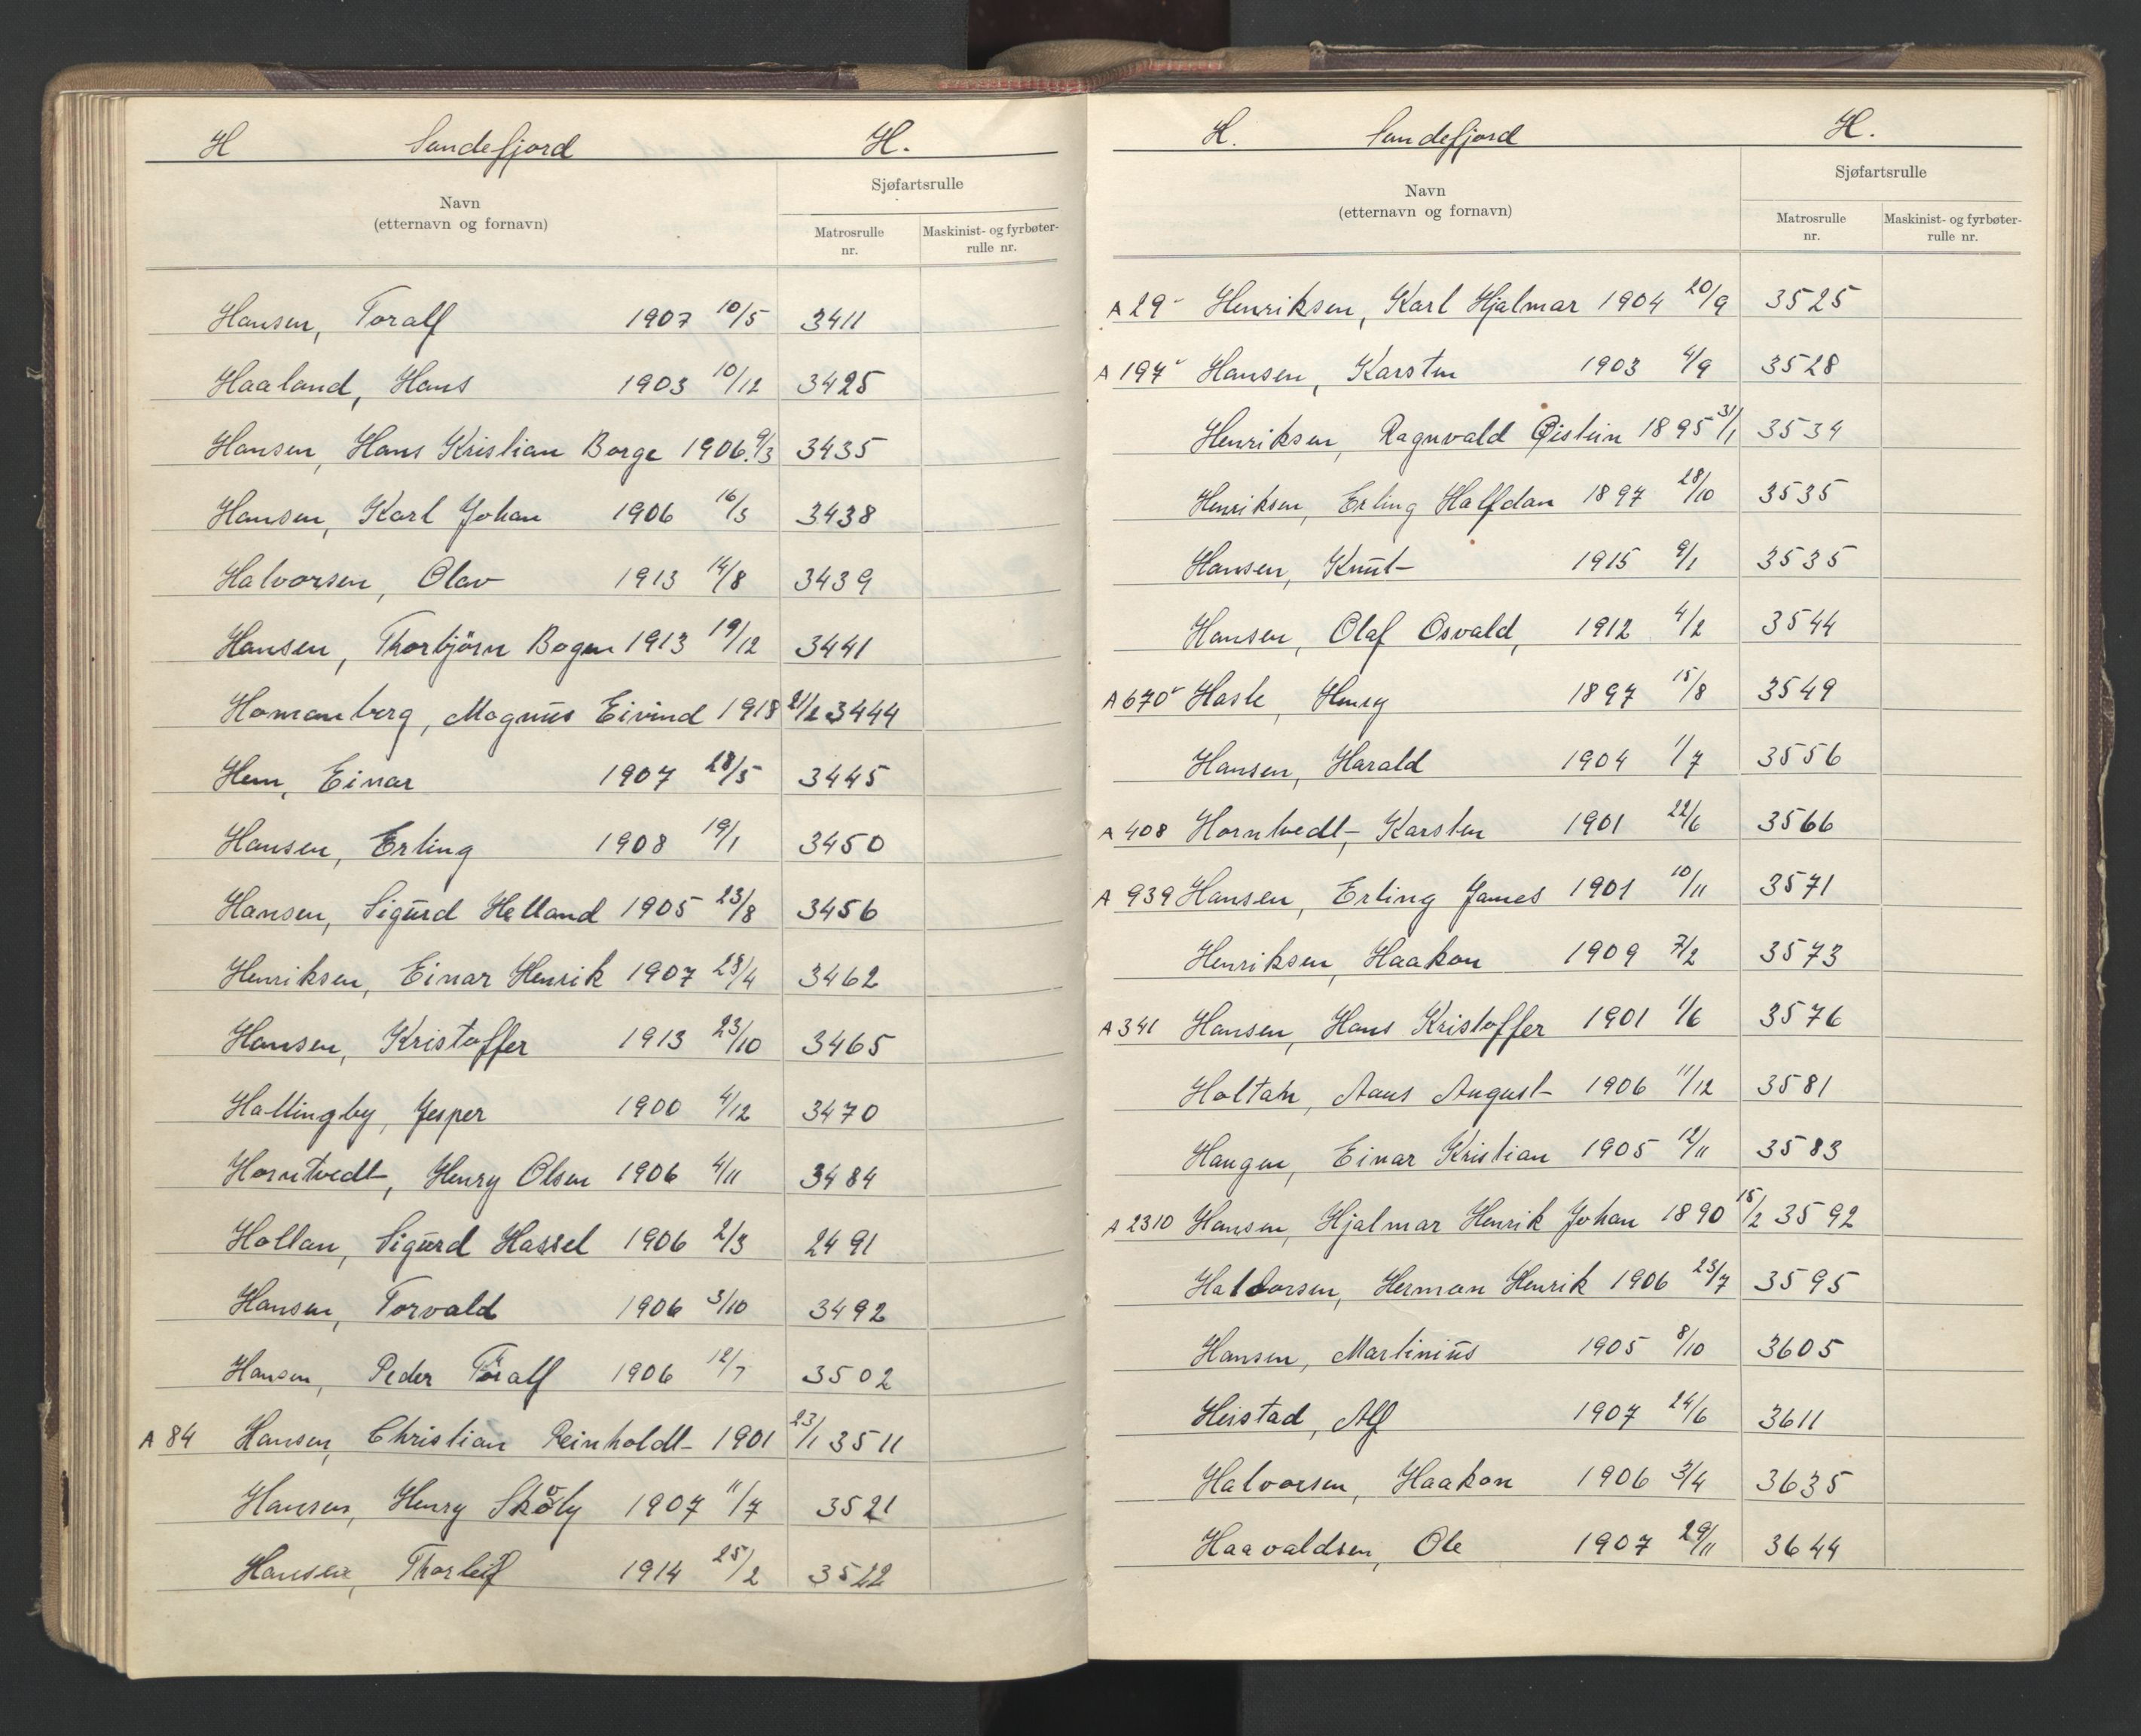 H Sandefjord H.
Sjøfartsrulle
Navn
(etternavn og fornavn)
Matrosrulle nr.
Maskinist- og fyrbøter-rulle nr.
Hansen, Toralf 1907 10/5 3411
Haaland, Hans 1903 10/12 3425
Hansen, Hans Kristian Borge 1906. 9/3 3435
Hansen, Karl Johan 1906 16/3 3438
Halvorsen, Olav 1913 14/8 3439
Hansen, Thorbjörn Bogen 1913 19/12 3441
Homanberg, Magnus Eivind 1918 21/2 3444
Hem, Einar 1907 28/5 3445
Hansen, Erling 1908 19/1 3450
Hansen, Sigurd Helland 1905 23/8 3456
Henriksen, Einar Henrik 1907 28/4 3462
Hansen, Kristoffer 1913 23/10 3465
Hallingby, Jesper 1900 4/12 3470
Horntvedt, Henry Olsen 1906 4/11 3484
Holtan, Sigurd Hassel 1906 2/3 2491
Hansen, Torvald 1906 3/10 3492
Hansen, Peder Toralf 1906 12/7 3502
A 84 Hansen, Christian Reinholdt 1901 23/1 3511
Hansen, Henry Skoly 1907 11/7 3521
Hansen, Thorleif 1914 25/2 3522
H. Sandefjord H.
Sjøfartsrulle
Navn
(etternavn og fornavn)
Matrosrulle nr.
Maskinist- og fyrbøter-rulle nr.
A 29 Henriksen, Karl Hjalmar 1904 20/9 3525
A 197 Hansen, Karsten 1903 4/9 3528
Henriksen, Ragnvald Øistein 1895 31/1 3534
Henriksen, Erling Halfdan 1897 28/10 3535
Hansen, Knut 1915 9/1 3535
Hansen, Olaf Osvald, 1912 4/2 3544
A 670 Hasle, Henry 1897 15/8 3549
Hansen, Harald 1904 1/7 3556
A 408 Horntvedt, Karsten 1901 22/6 3566
A 939 Hansen, Erling James 1901 10/11 3571
Henriksen, Haakon 1909 7/2 3573
A 341 Hansen, Hans Kristoffer 1901 1/6 3576
Holtan, Aans August 1906 11/12 3581
Haugen, Einar Kristian 1905 12/11 3583
A 2310 Hansen, Hjalmar Henrik Johan 1890 15/2 3592
Haldorsen, Herman Henrik 1906 23/7 3595
Hansen, Martinius 1905 8/10 3605
Heistad, Alf 1907 24/6 3611
Halvorsen, Haakon 1906 3/4 3635
Haavaldsen, Ole 1907 29/11 3644